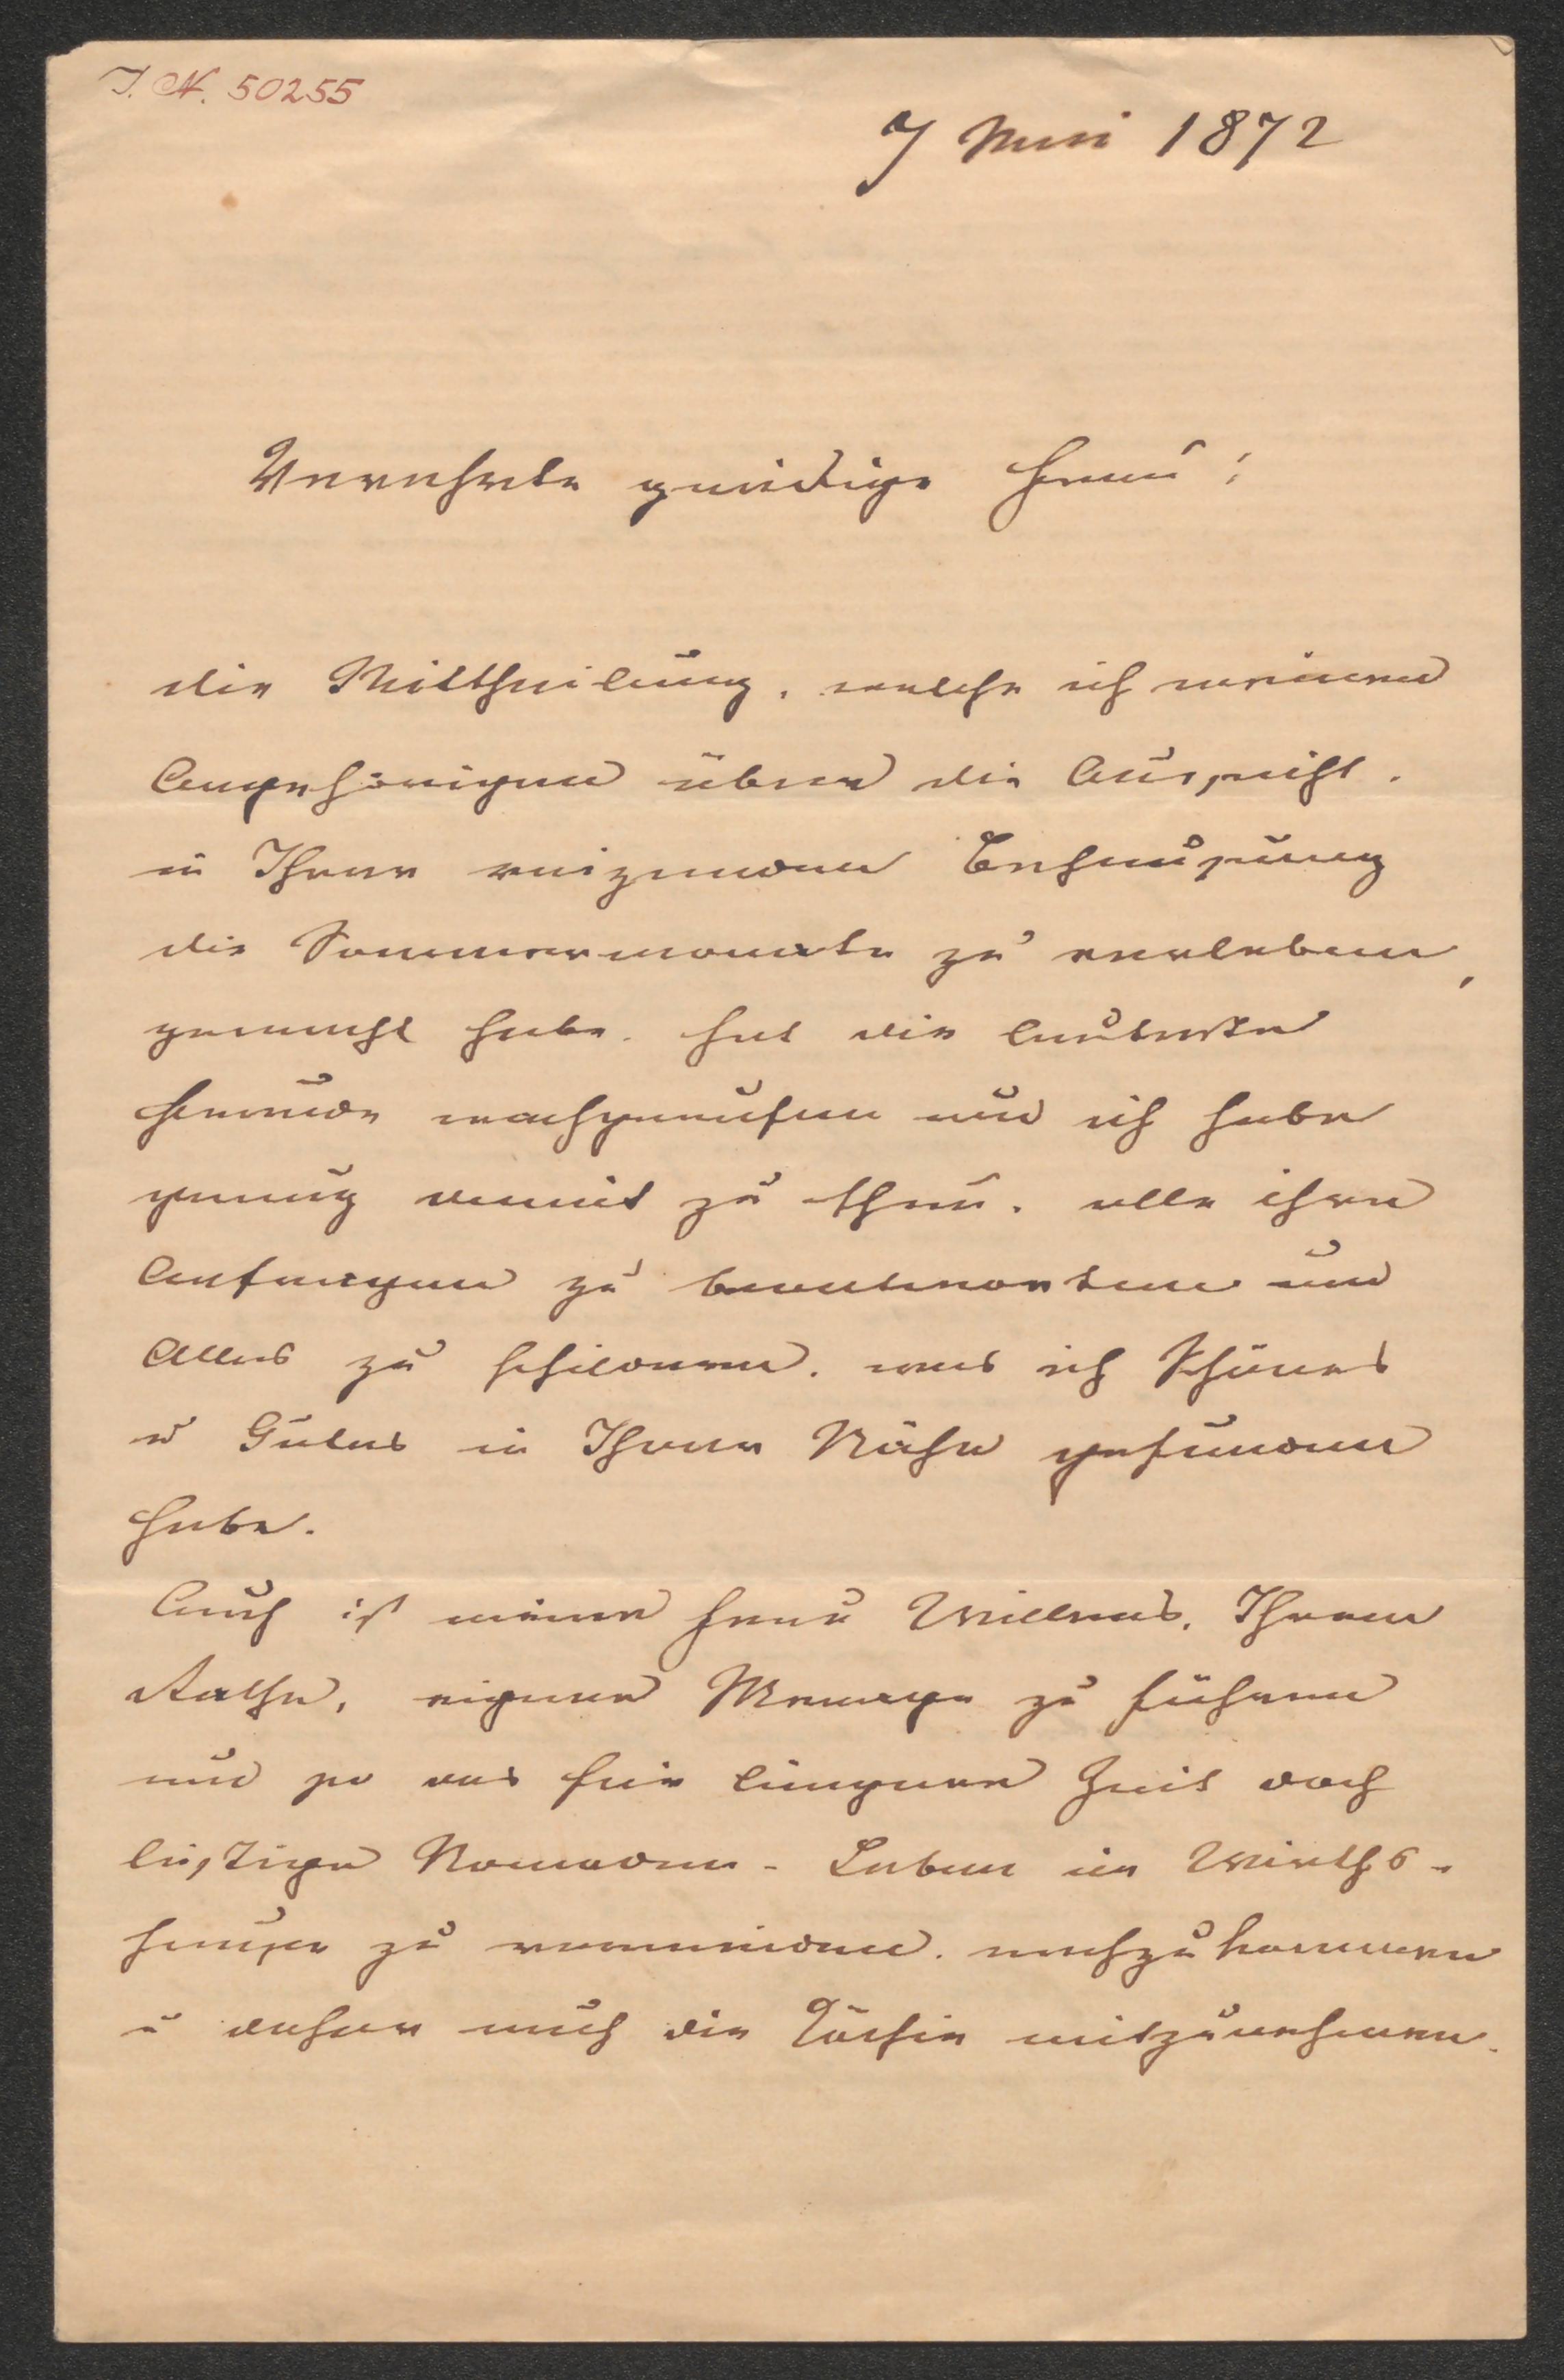 I. N. 50255
7 Mai 1872
Verehrte gnädige Frau!
die Mittheilung, welche ich meinen
Angehörigen über die Aussicht,
in Ihrer reizenden Behausung
die Sommermonate zu verleben,
gemacht habe, hat die lauterste
Freude wachgerufen und ich habe
genug damit zu thun, alle ihre
Anfragen zu beantworten und
Alles zu schildern, was ich Schönes
u Gutes in Ihrer Nähe gefunden
habe.
Auch ist meine Frau Willens, Ihrem
Rathe, eigene Menage zu führen
und so das für längere Zeit doch
lästige Nomaden-Leben im Wirths-
hause zu vermeiden, nachzukommen
u daher auch die Köchin mitzunehmen.